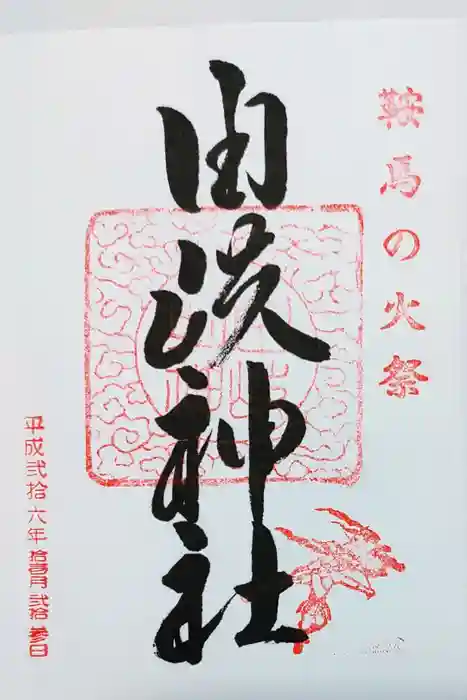 鞍馬の火祭
由岐神社
平成弐拾六年拾壹月弐拾参日